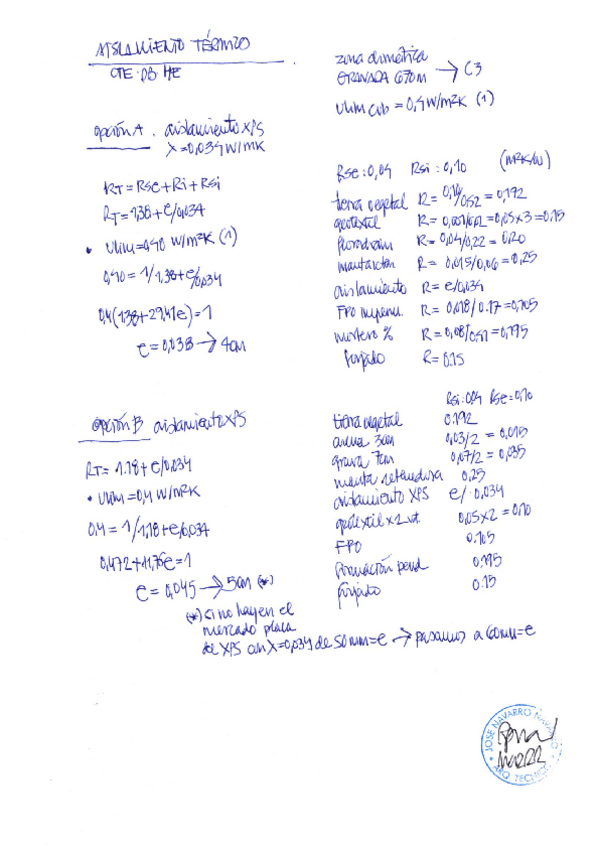 AISLAMIENTO TÉRMICO
CTE-DB HE
zona climática
GRANADA 670m → C3
Ulim cub = 0,4 W/m²K (1)
opción A. aislamiento XPS
λ=0,034 W/mK
RT = Rse + Ri + Rsi
RT = 1,38 + e/0,034
• Ulim = 0,40 W/m²K (1)
0,40 = 1/1,38+e/0,034
0,4(1,38+29,41e)=1
e = 0,038 → 4cm
Rse: 0,04 Rsi: 0,10 (m²K/W)
tierra vegetal R = 0,10/0,52 = 0,192
geotextil R = 0,001/0,02 = 0,05 x 3 = 0.15
R = 0,04/0,22 = 0,20
manta R = 0,015/0,06 = 0,25
aislamiento R = e/0,034
FPO R = 0,018/0.17 = 0,105
mortero % R = 0,08/0,41 = 0,195
forjado R = 0.15
opción B aislamiento XPS
RT = 1.18 + e/0.034
• Ulim = 0,4 W/m²K
0.4 = 1/1,18+e/0,034
0,472+11,76e=1
e = 0,045 → 5cm (*)
(*) si no hay en el
mercado placa
de XPS con λ=0,034 de 50mm=e → pasamos a 60mm=e
Rsi: 0.04 Rse=0,10
tierra vegetal 0.192
arena 3cm 0,03/2 = 0,015
grava 7cm 0,07/2 = 0,035
manta retenedora 0.25
aislamiento XPS e/0.034
geotextil x 2 ut. 0,05x2 = 0,10
FPO 0.105
formación pend 0.195
forjado 0.15
JOSE NAVARRO NAVARRO
ARQ. TECNICO